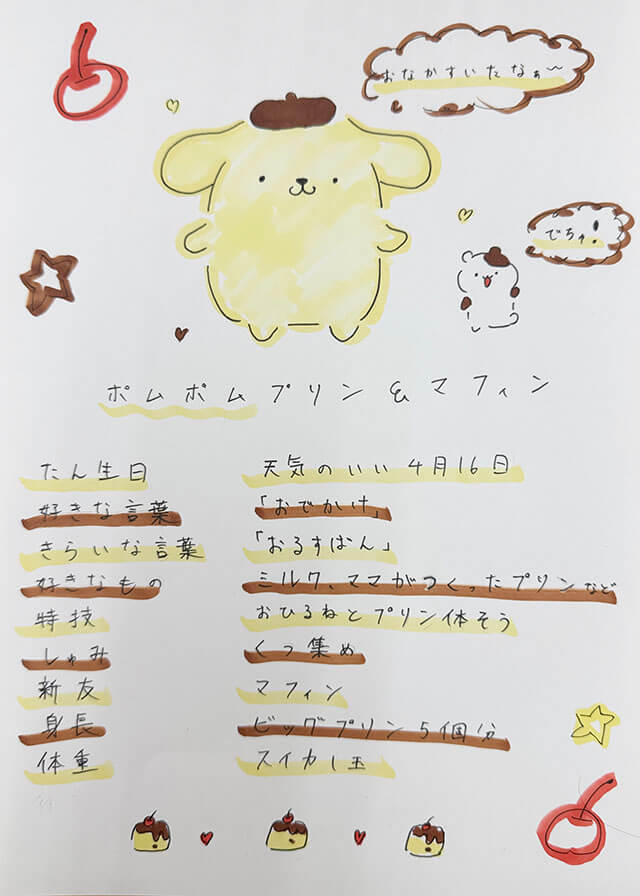 おなかすいたなぁ〜
でちゅ!
ポムポムプリン&マフィン
たん生日 天気のいい4月16日
好きな言葉 「おでかけ」
きらいな言葉 「おるすばん」
好きなもの ミルク、ママがつくったプリンなど
特技 おひるねとプリン体そう
しゅみ くつ集め
新友 マフィン
身長 ビッグプリン5個分
体重 スイカ1玉